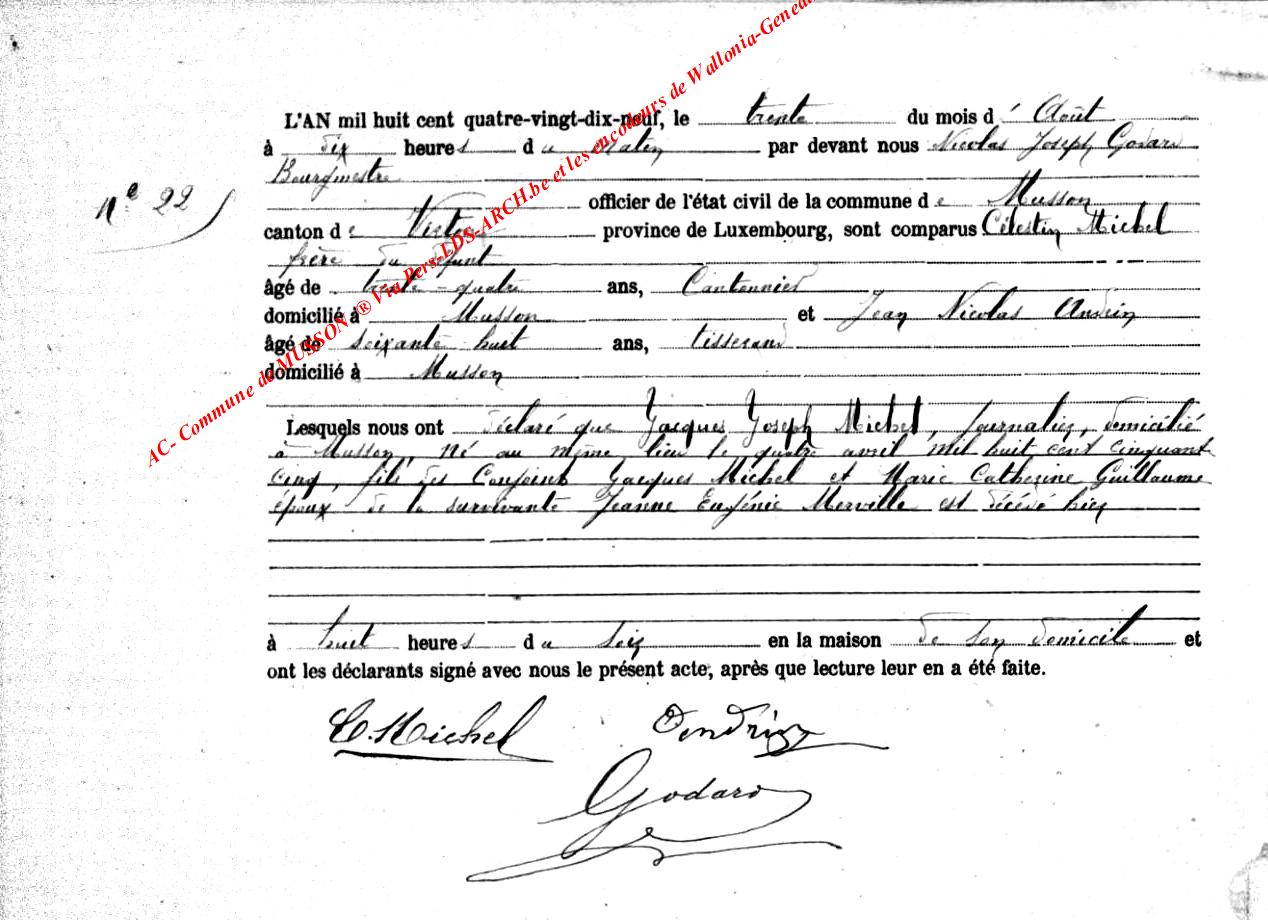 AC- Commune de MUSSON ® Via Pers-LDS-ARCH.be et les encodeurs de Wallonia-Geneal
L'AN mil huit cent quatre-vingt-dix-neuf, le trente du mois d' Août
à dix heures du matin par devant nous Nicolas Joseph Godard
Bourgmestre
Nº 22
officier de l'état civil de la commune de Musson
canton de Virton province de Luxembourg, sont comparus Célestin Michel
frère du défunt
âgé de trente-quatre ans, Cantonnier
domicilié à Musson et Jean Nicolas Andrin
âgé de soixante huit ans, tisserand
domicilié à Musson
Lesquels nous ont déclaré que Jacques Joseph Michel, journalier, domicilié
à Musson, né au même lieu le quatre avril mil huit cent cinquante
cinq, fils des Conjoints Jacques Michel et Marie Catherine Guillaume
époux de la survivante Jeanne Eugénie Merville est décédé hier
à huit heures du soir en la maison de son domicile et
ont les déclarants signé avec nous le présent acte, après que lecture leur en a été faite.
C. Michel
Godard